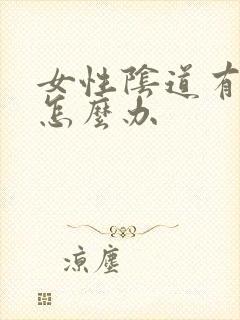 女性陰道有
怎麼办
凉塵